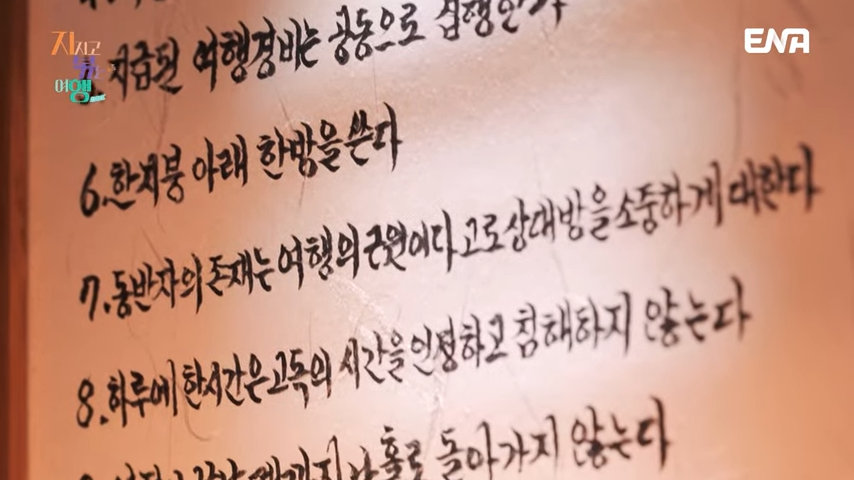 지지고
볶는
여행
ENA
지급된 여행경비는 공동으로 집행한다
6. 한지붕 아래 한방을 쓴다
7. 동반자의 존재는 여행의 근원이다 고로 상대방을 소중하게 대한다
8. 하루에 한시간은 고독의 시간을 인정하고 침해하지 않는다
홀로 돌아가지 않는다